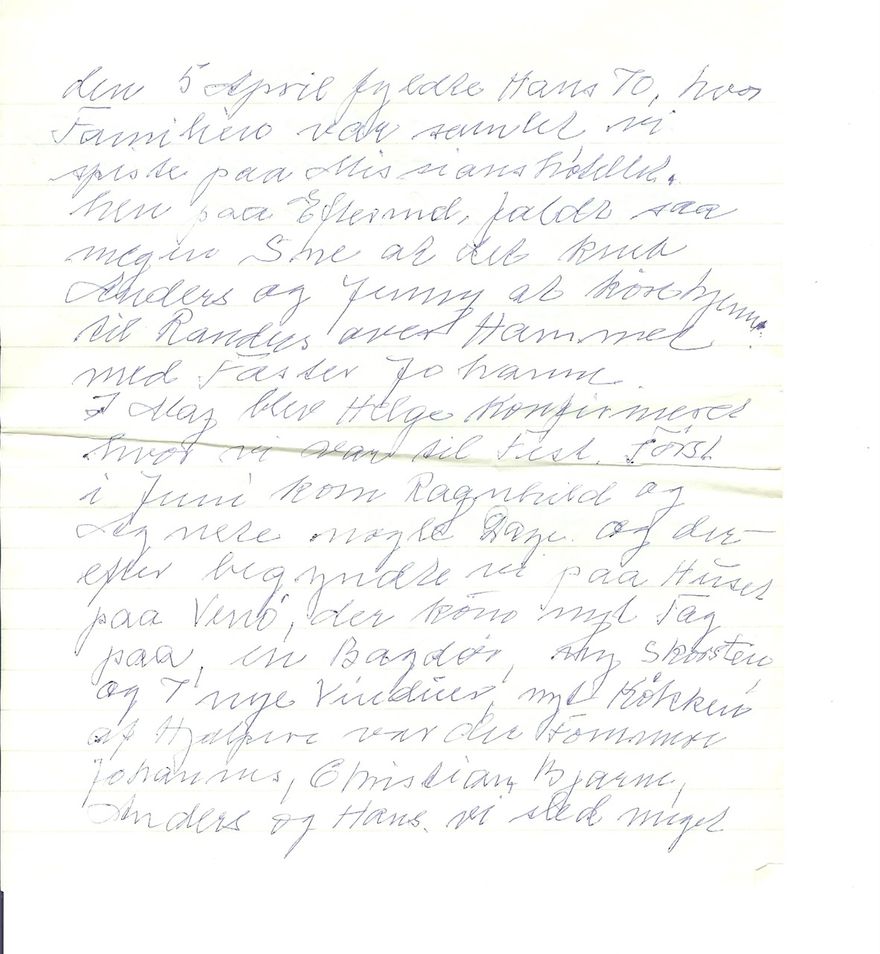 den 5 April fyldte Hans 70, hvor
Familien var samlet, vi
spiste paa Missionshotellet.
hen paa Eftermd, faldt saa
megen Sne at det kneb
Anders og Jenny at köre hjem
til Randers over Hammel
med Faster Johanne.
I Maj blev Helge Konfirmeret
hvor vi var til Fest. Först
i Juni kom Ragnhild og
Signete nogle Dage. og der-
efter begyndte vi paa Huset
paa Venö, der kom nyt Tag
paa, en Bagdör, ny Skorsten,
og 7 nye Vinduer, nyt Kökken
af Hjælpere var der Tömmrer
Johannes, Christian, Bjarne,
Anders og Hans. vi sled meget